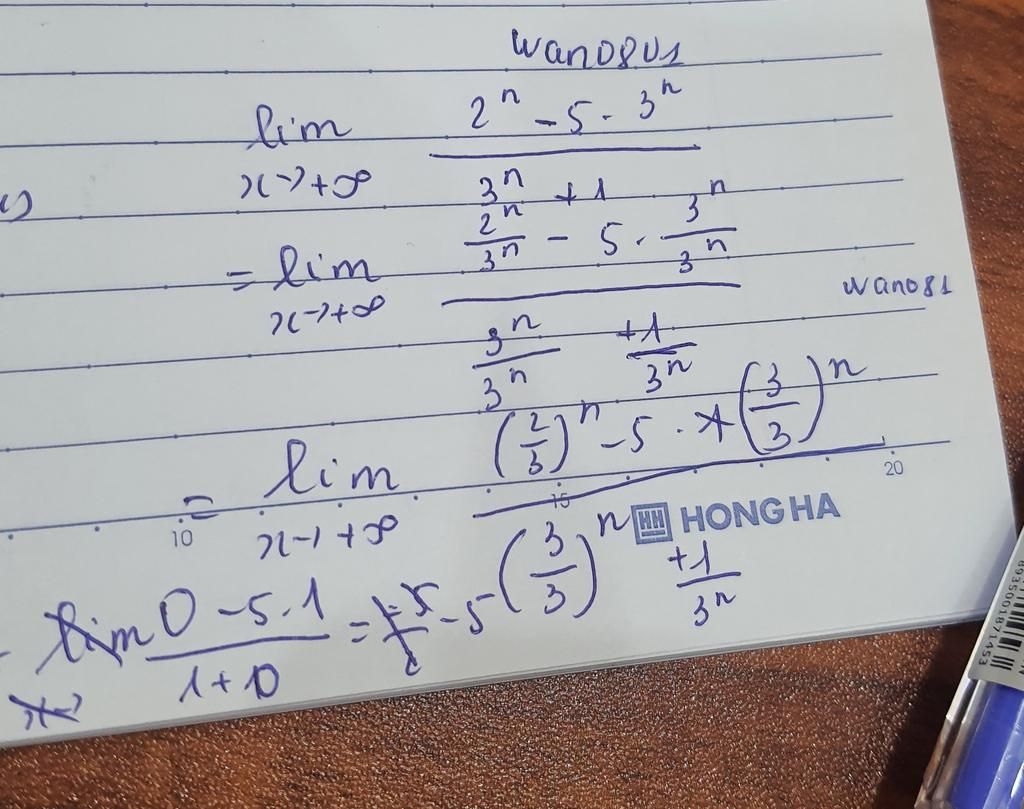 wan0801
lim x->+∞ (2^n - 5 . 3^n) / (3^n + 1)
= lim x->+∞ (2^n/3^n - 5 . 3^n/3^n) / (3^n/3^n +1/3^n)
wan081
= lim x->+∞ ((2/3)^n - 5 . (3/3)^n) / ((3/3)^n +1/3^n)
10 15 20
HONG HA
(0 - 5.1) / (1+0) = -5
8935001871453